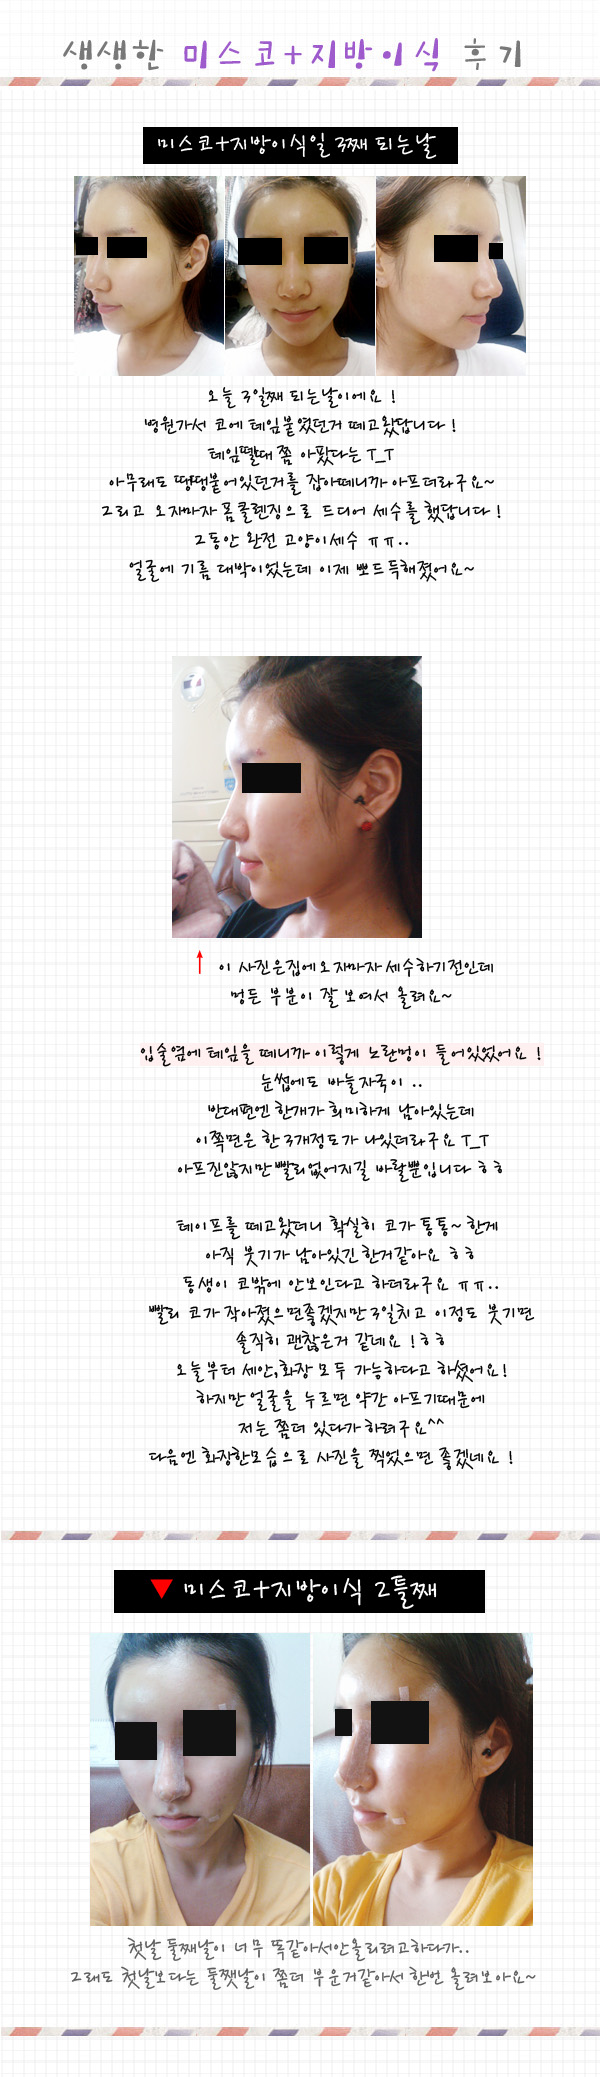 생생한 미스코+지방이식 후기
미스코+지방이식일 3째 되는날
오늘 3일째 되는날이에요 !
병원가서 코에 테잎붙였던거 떼고왔답니다 !
테잎뗄때 쫌 아팠다는 T_T
아무래도 땡땡붙어있던거를 잡아떼니까 아프더라구요~
그리고 오자마자 폼클렌징으로 드디어 세수를 했답니다 !
그동안 완전 고양이세수 ㅠㅠ..
얼굴에 기름 대박이었는데 이제 뽀드득해졌어요~
↑ 이 사진은집에오자마자세수하기전인데
멍든 부분이 잘 보여서 올려요~
입술옆에 테잎을 떼니까 이렇게 노란멍이 들어있었어요 !
눈썹에도 바늘자국이 ..
반대편엔 한개가 희미하게 남아있는데
이쪽면은 한 3개정도가 나있더라구요 T_T
아프진않지만빨리없어지길 바랄뿐입니다 ㅎㅎ
테이프를 떼고왔더니 확실히 코가 통통~ 한게
아직 붓기가 남아있긴 한거같아요 ㅎㅎ
동생이 코밖에 안보인다고 하더라구요 ㅠㅠ..
빨리 코가 작아졌으면좋겠지만 3일치고 이정도 붓기면
솔직히 괜찮은거 같네요 !ㅎㅎ
오늘부터 세안,화장 모두 가능하다고 하셨어요!
하지만 얼굴을 누르면 약간 아프기때문에
저는 쫌더 있다가 하려구요^^
다음엔 화장한모습으로 사진을 찍었으면 좋겠네요 !
▼ 미스코+지방이식 2틀째
첫날 둘째날이 너무 똑같아서안올리려고하다가..
그래도 첫날보다는 둘쨋날이 쫌더 부은거같아서 한번 올려보아요~